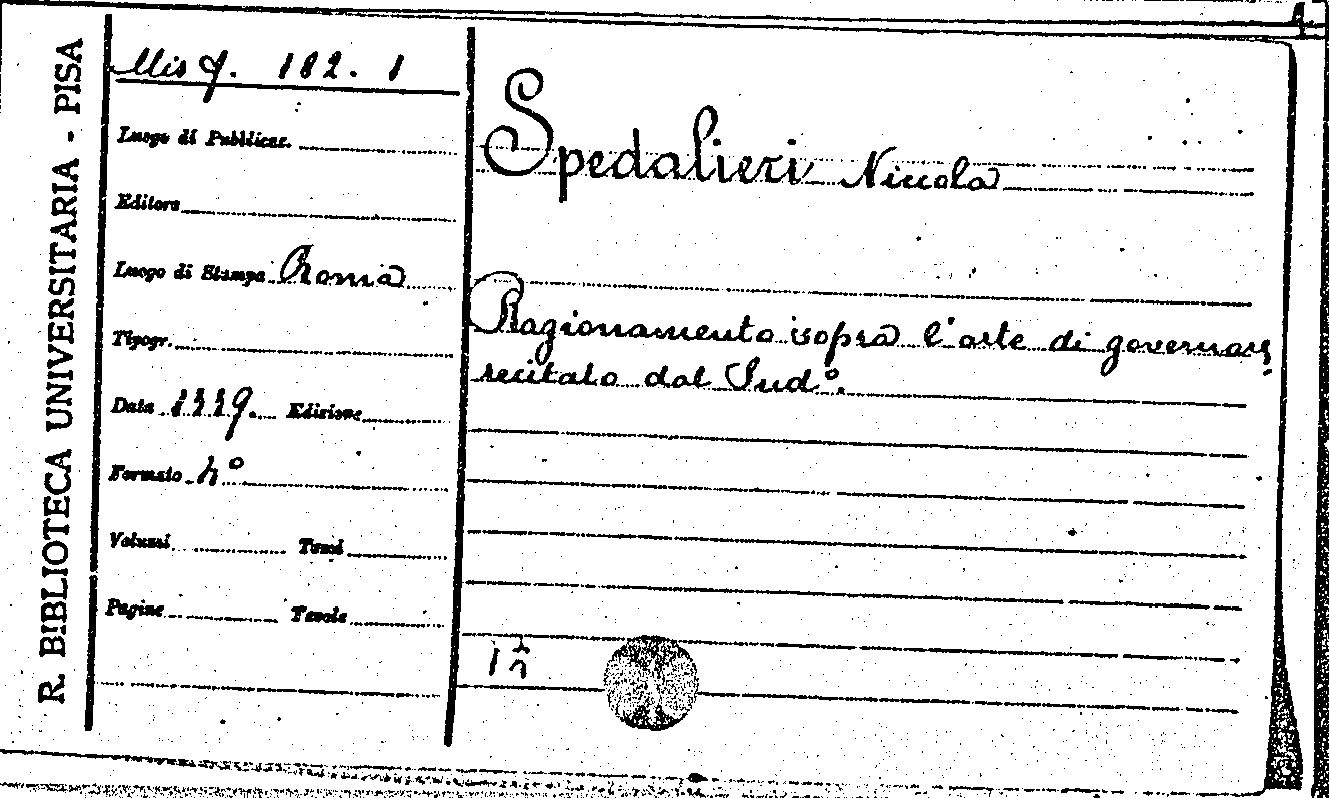 R. BIBLIOTECA UNIVERSITARIA - PISA
Misq. 182. 1
Luogo di Pubblicaz.
Editore
Luogo di Stampa Roma
Tipogr.
Data 1779. Edizione
Formato 4º
Volumi Tomi
Pagine Tavole
Spedalieri Niccola
Ragionamento sopra l'arte di governare
recitato dal Sudº.